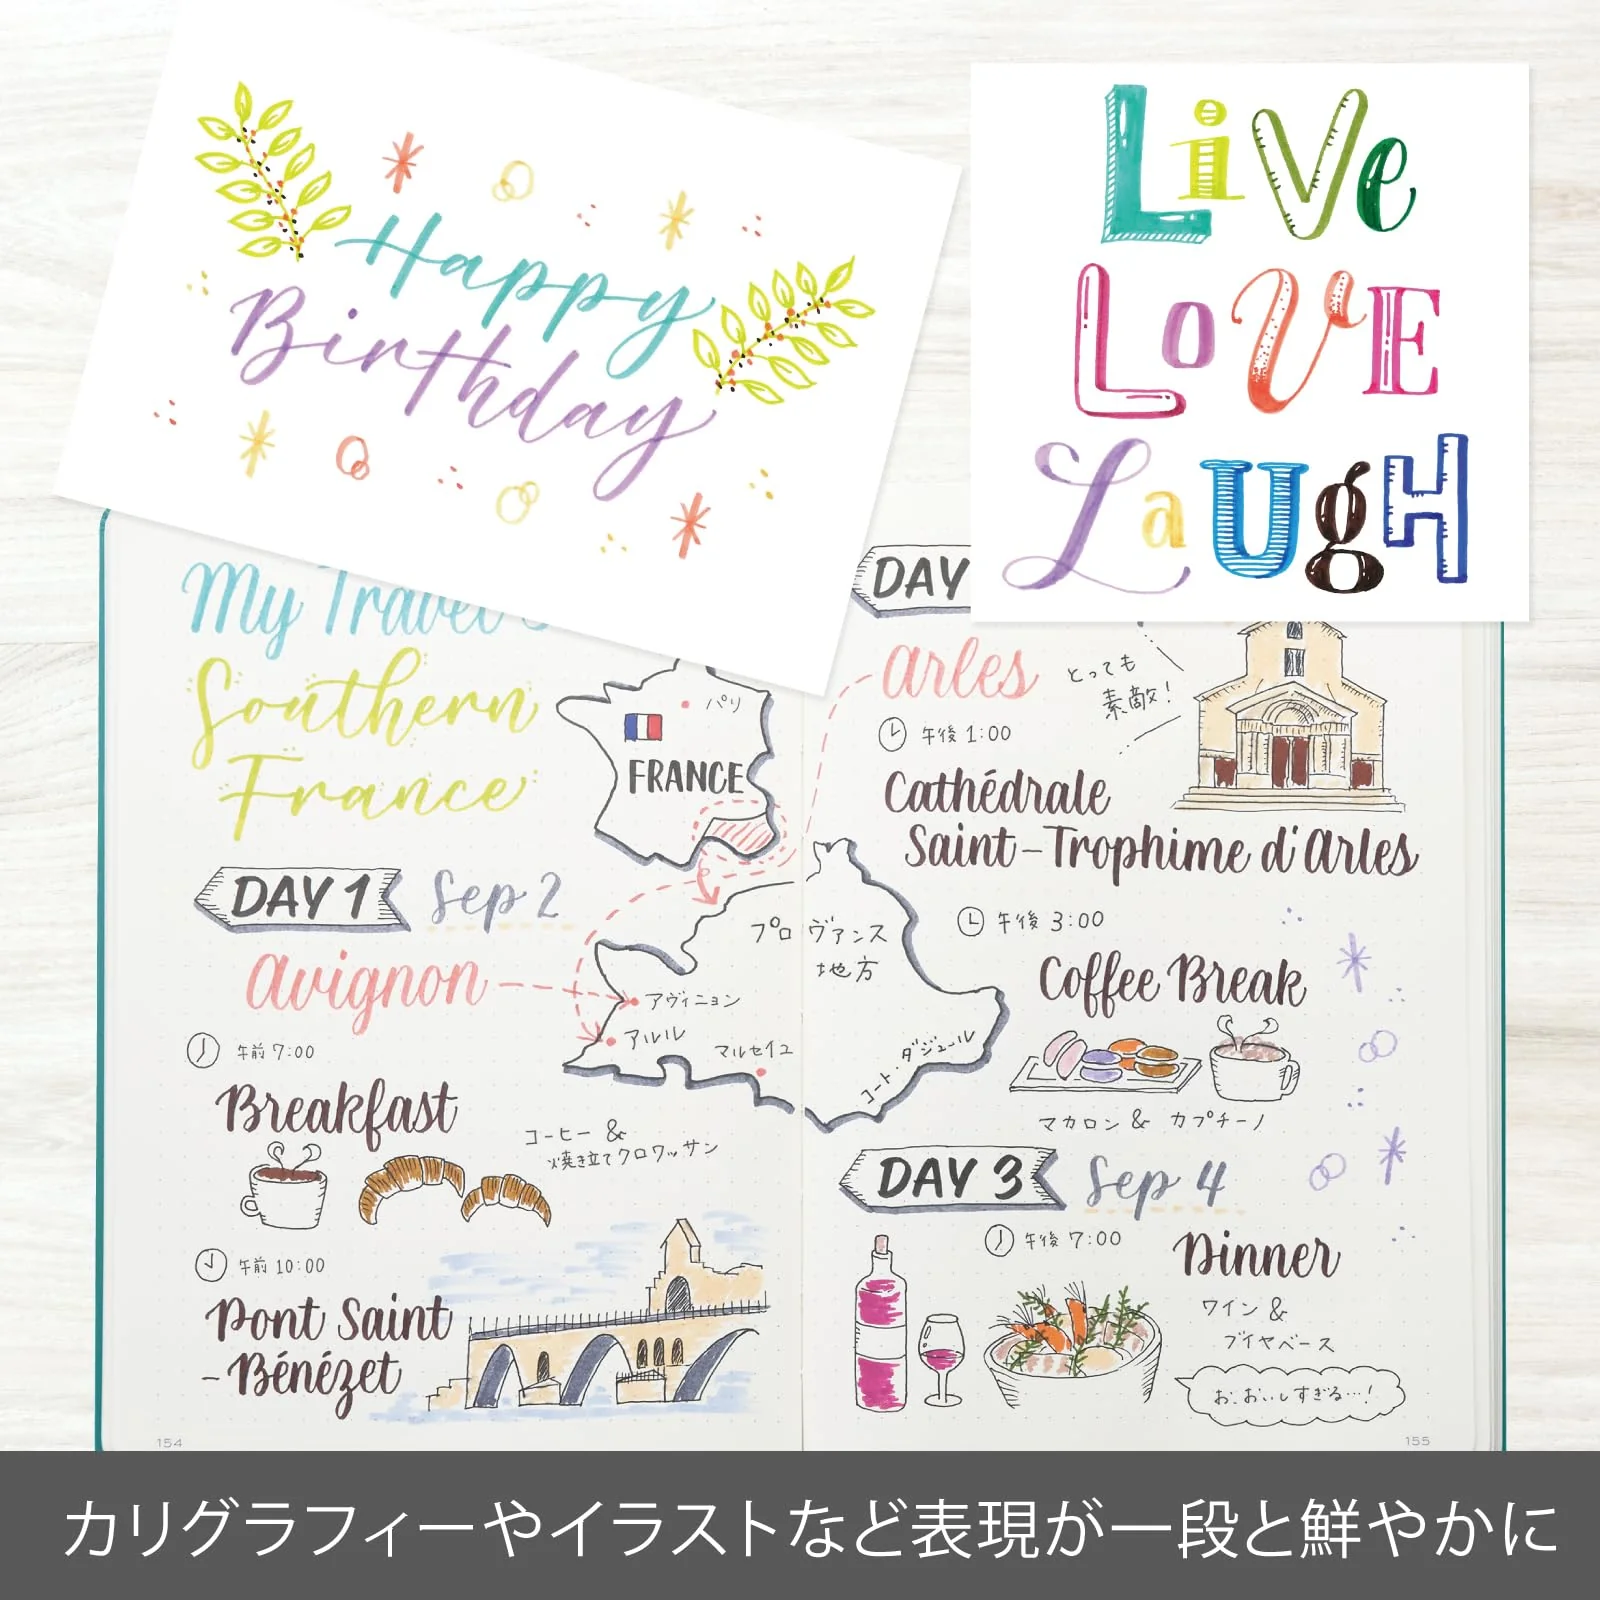 Happy
Birthday
Live
Love
Laugh
My Travel
Southern
France
パリ
FRANCE
DAY 1 Sep 2
Avignon
午前 7:00
Breakfast
コーヒー &
焼き立てクロワッサン
午前 10:00
Pont Saint
-Bénézet
プロヴァンス
地方
アヴィニョン
アルル
マルセイユ
コート・ダジュール
154
DAY
Arles
とっても
素敵!
午後 1:00
Cathédrale
Saint-Trophime d'Arles
午後 3:00
Coffee Break
マカロン & カプチーノ
DAY 3 Sep 4
午後 7:00
Dinner
ワイン &
ブイヤベース
お、おいしすぎる…!
155
カリグラフィーやイラストなど表現が一段と鮮やかに